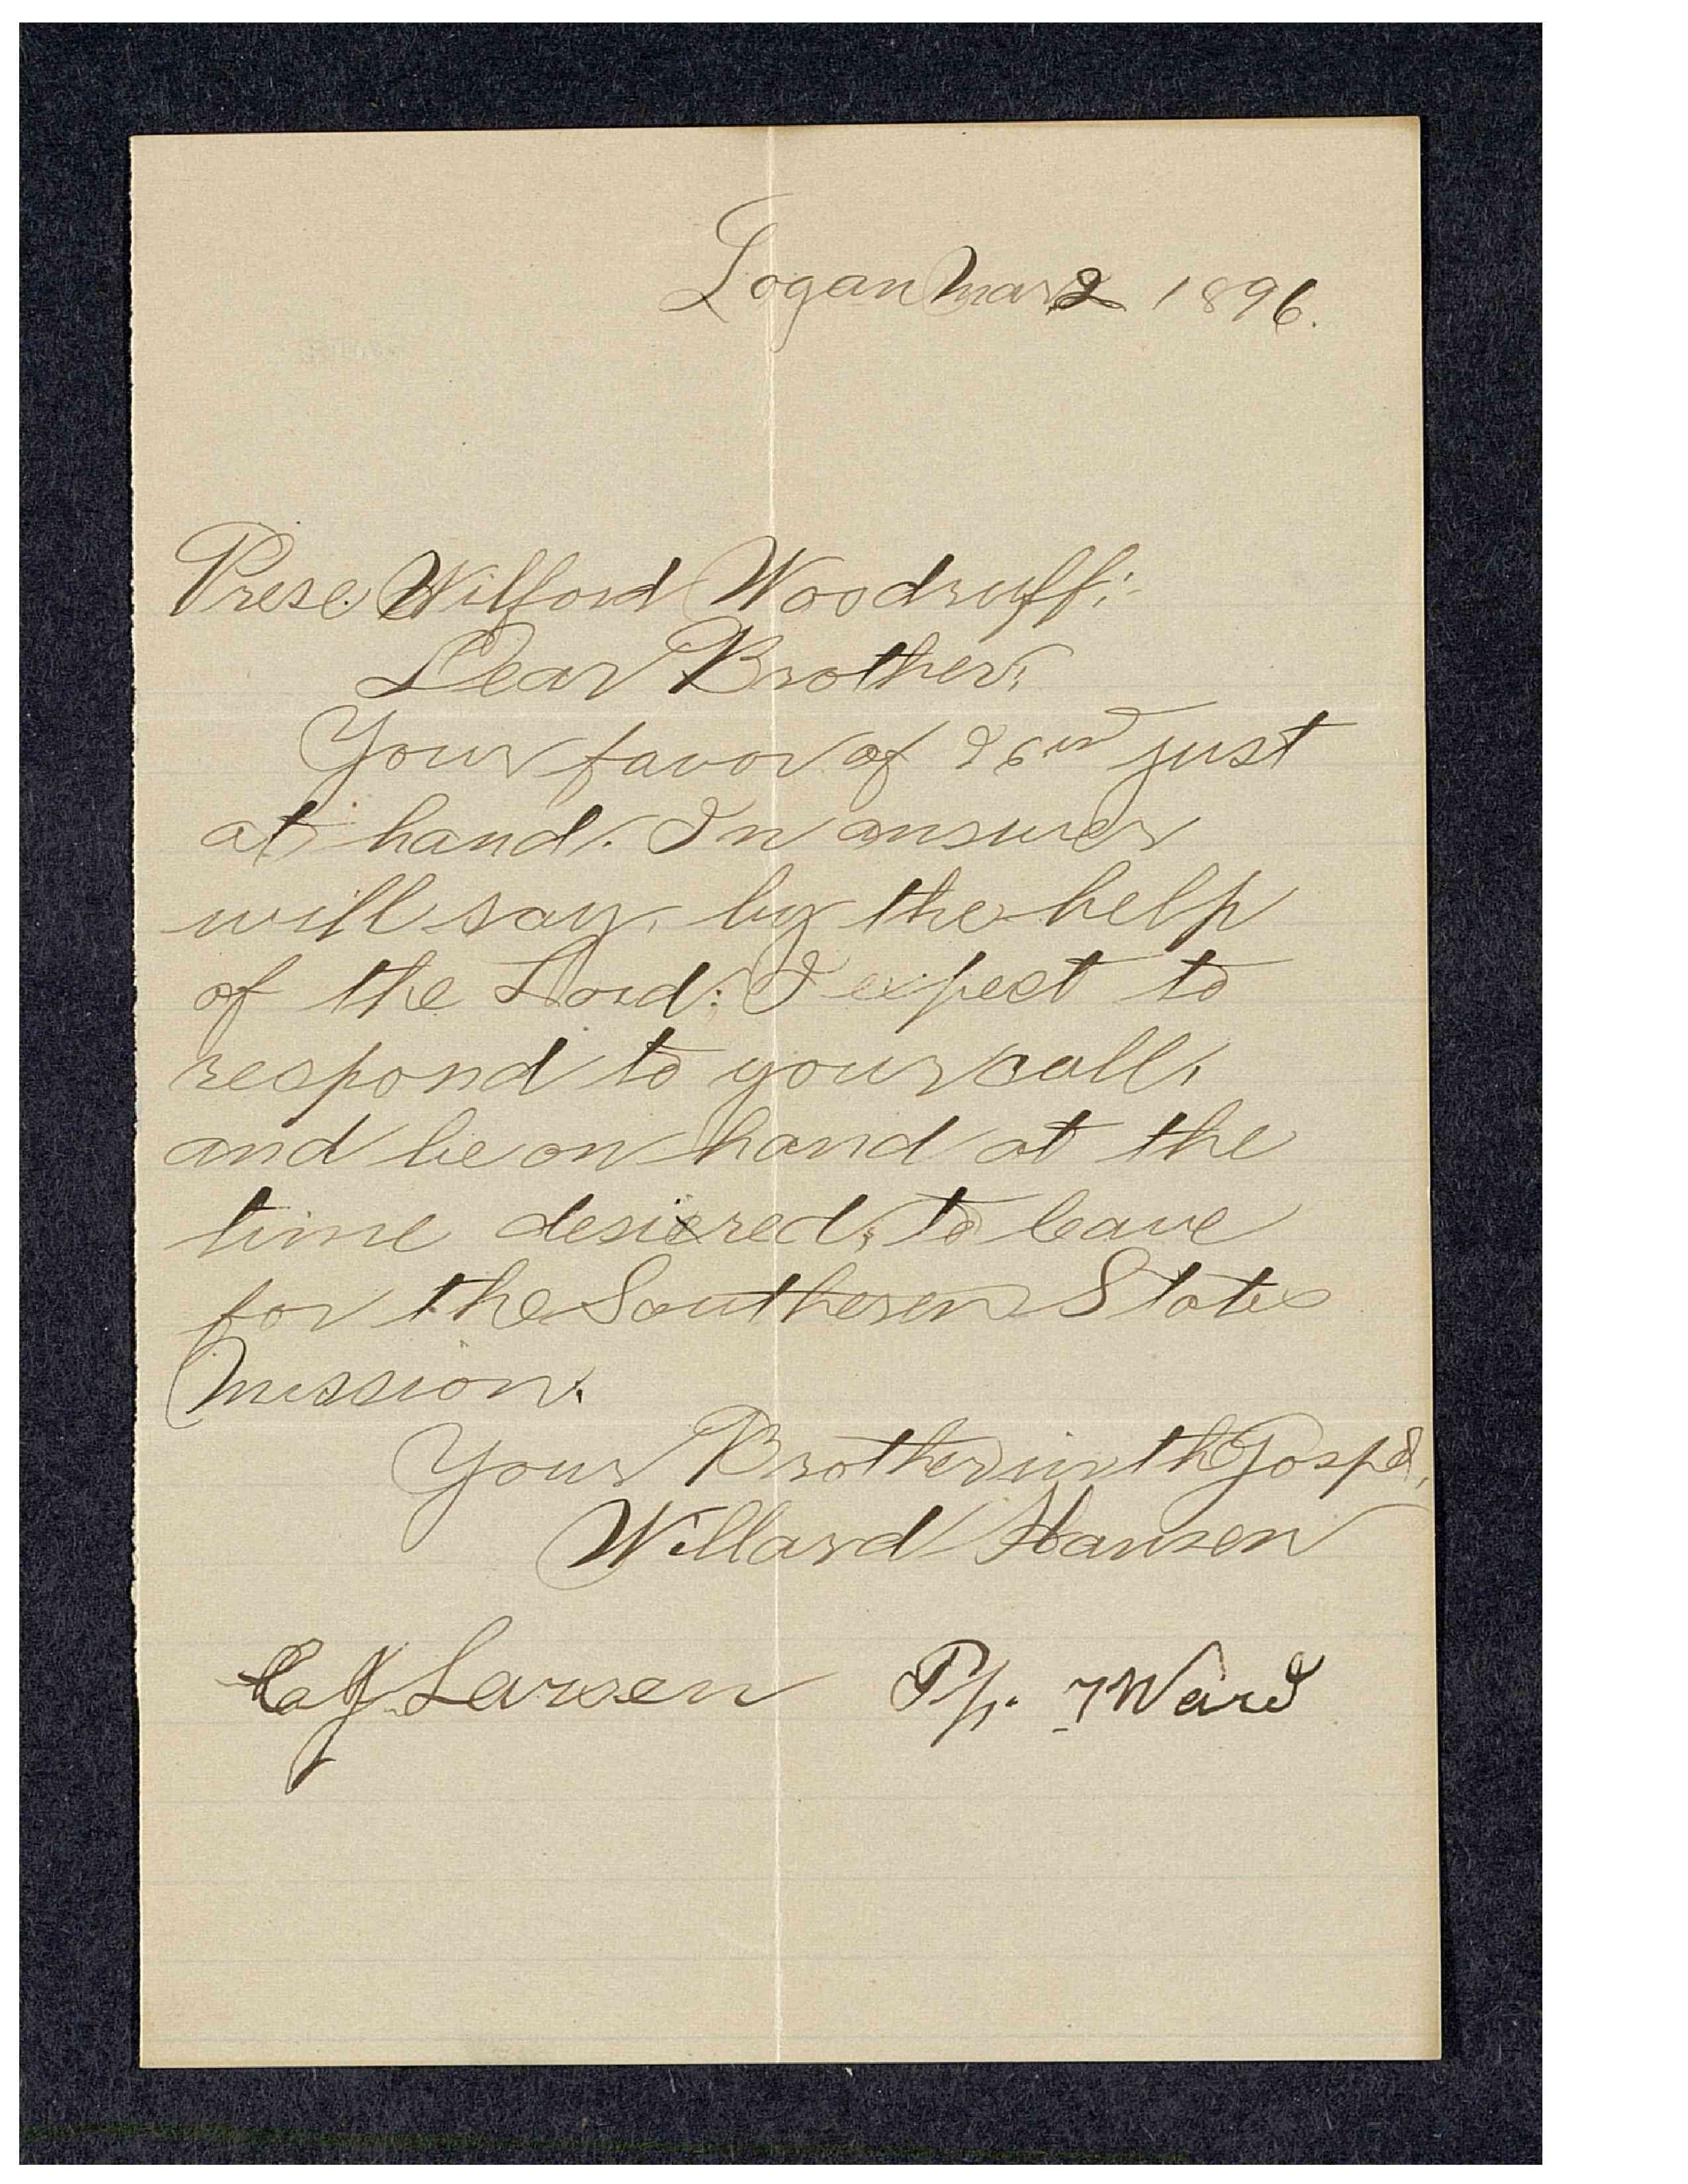 Logan Mar 2 1896.
Prese. Wilford Woodruff:-
Dear Brother;
Your favor of 26th just
at hand. In answer
will say, by the help
of the Lord; I expect to
respond to your call,
and be on hand at the
time desiered, to leave
for the Southeren States
Mission.
Your Brother in the Gospel,
Willard Hansen
C J Larsen Bp. 7 Ward